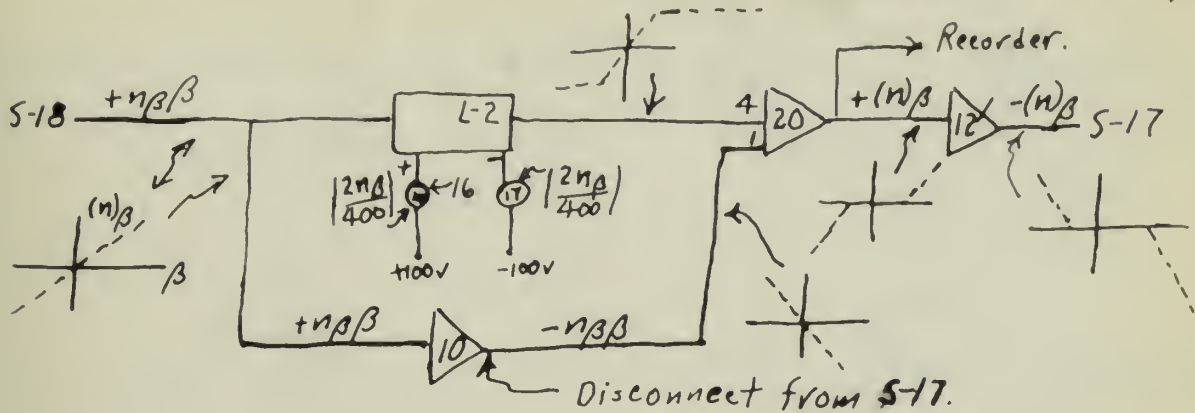 Recorder.
S-18 +nββ L-2 4 20 +(n)β 12 -(n)β S-17
1
+ -
|2nβ/400| 16 17 |2nβ/400|
(n)β
β
+100v -100v
+nββ 10 -nββ
Disconnect from S-17.